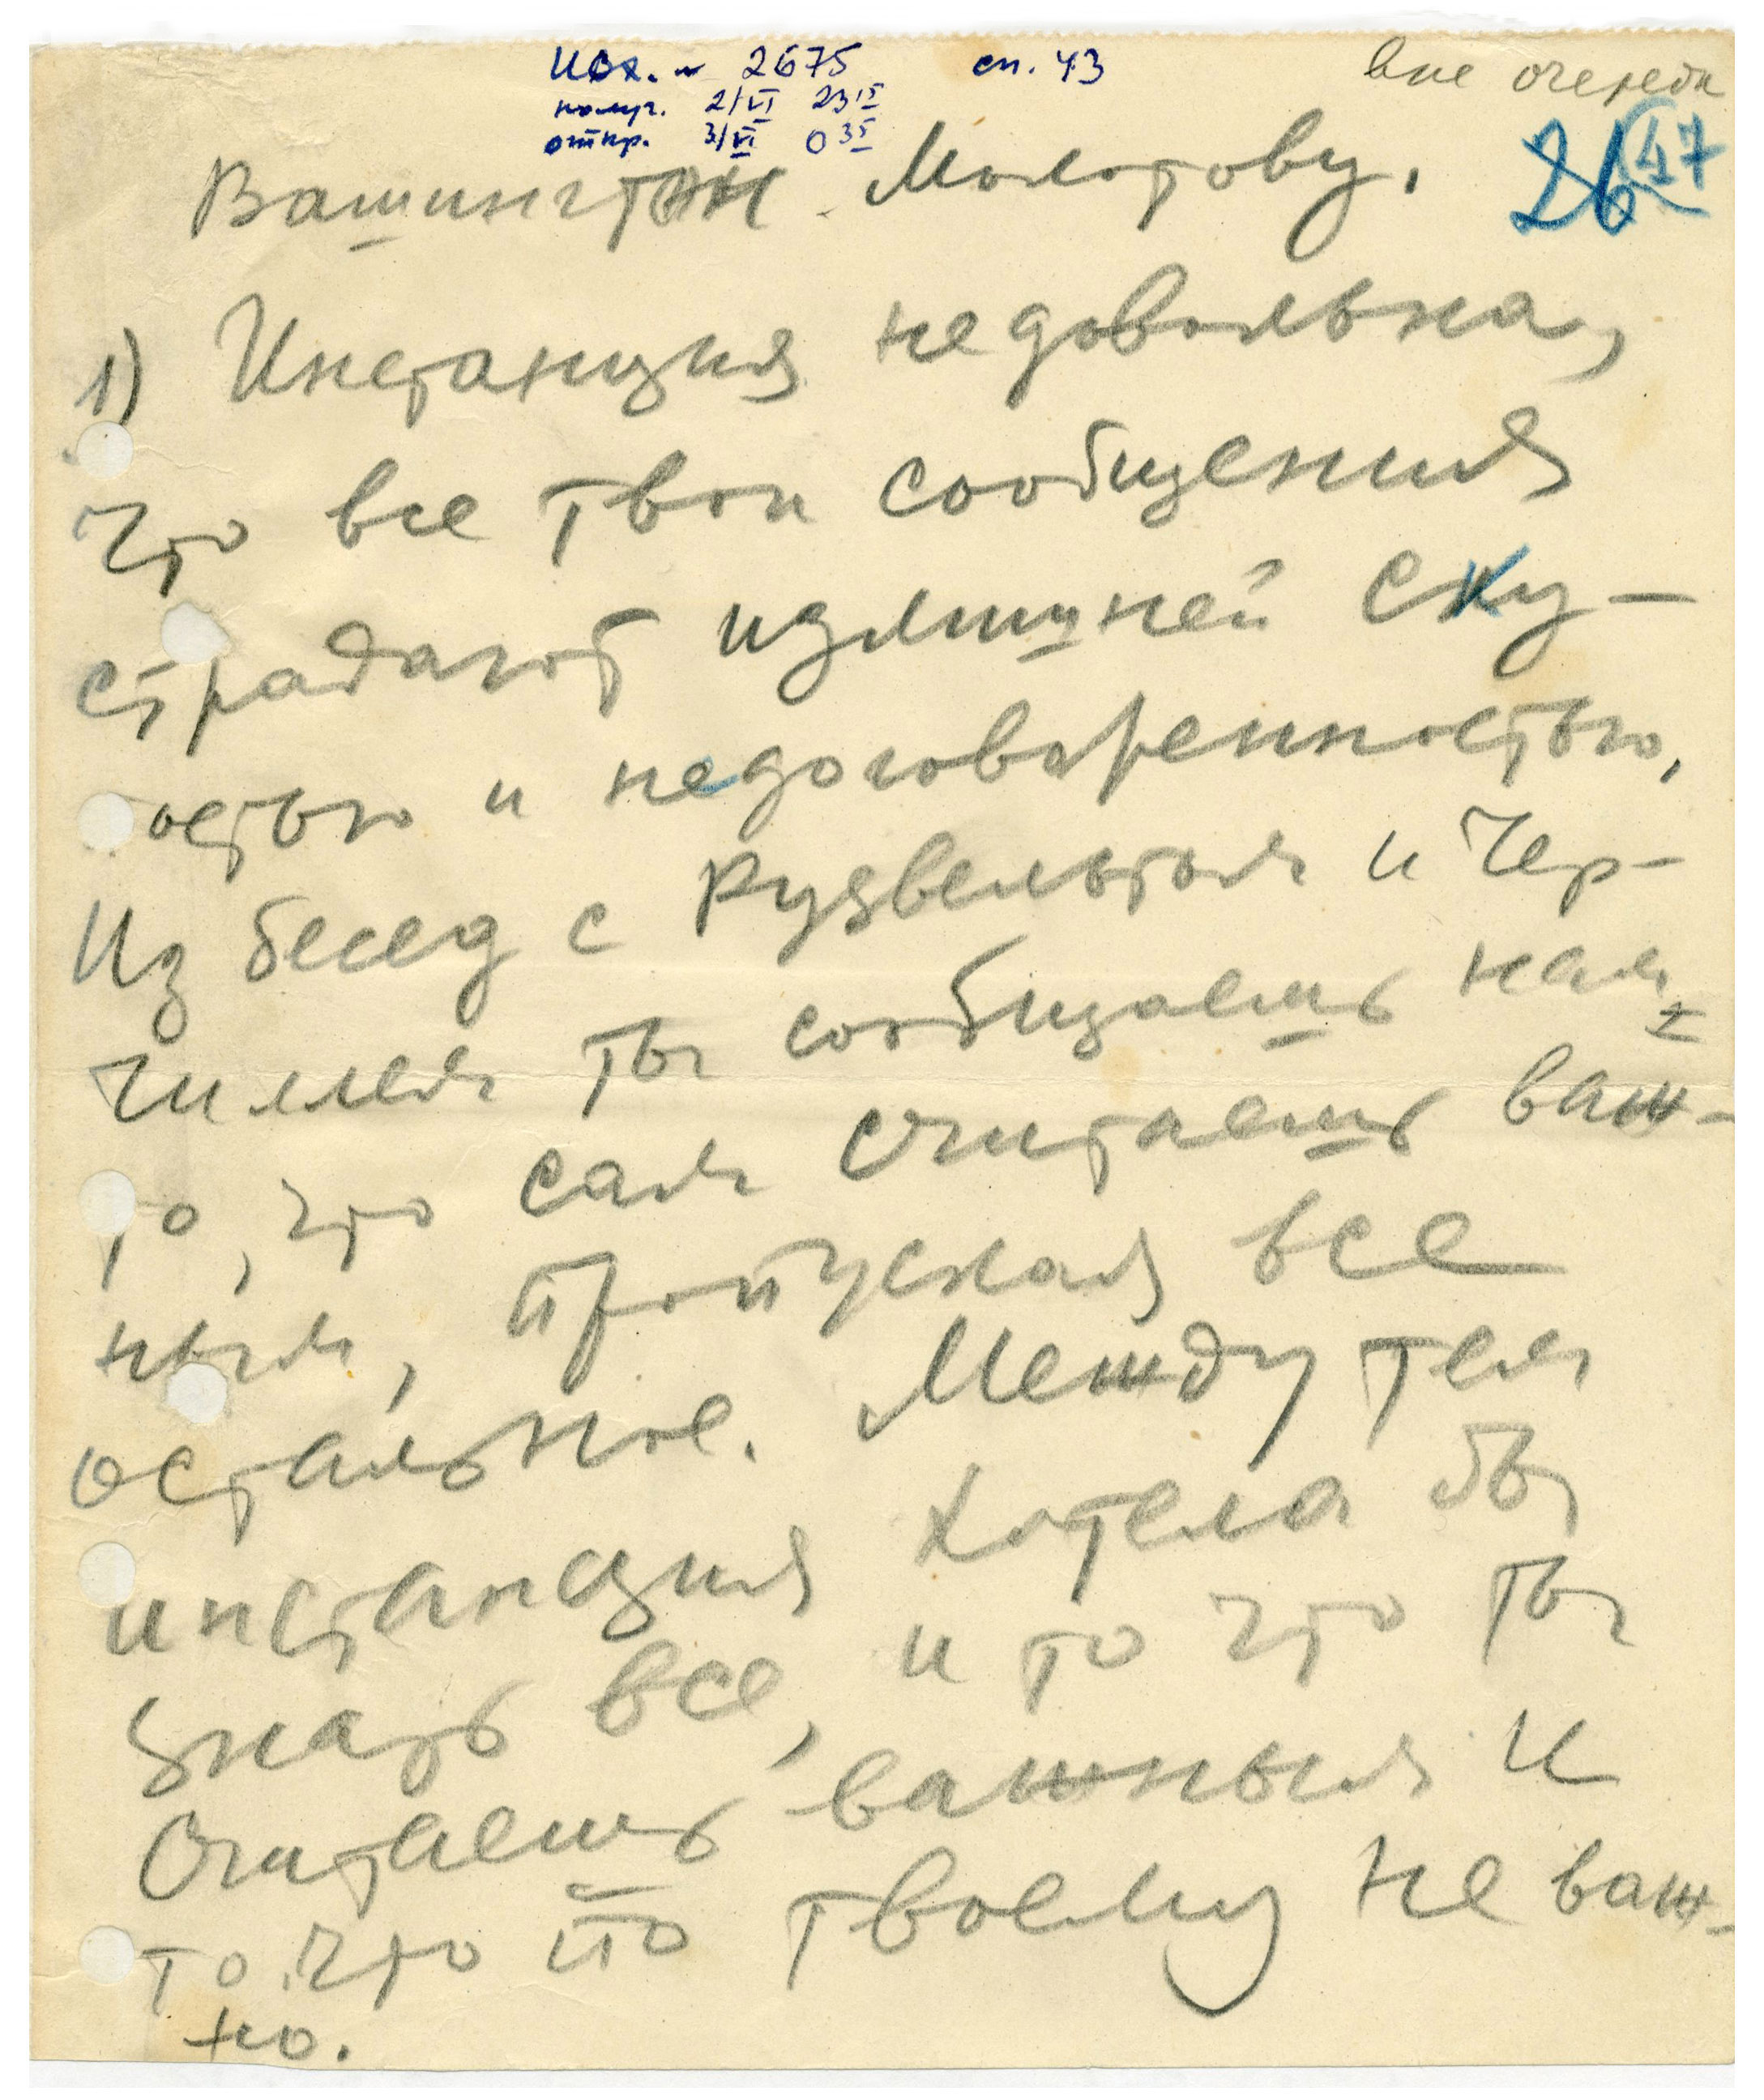 Исх. № 2675 сп. 43 вне очереди
получ. 2/VI 23 15
откр. 3/VI 0 35
26 47
Вашингтон Молотову.
1) Инстанция недовольна,
что все твои сообщения
страдают излишней ску-
остью и недоговоренностью,
Из бесед с Рузвельтом и Чер-
чиллем ты сообщаешь нам
то, что сам считаешь важ-
ным, пропуская все
остальное. Между тем
инстанция хотела бы
знать все, и то что ты
считаешь важным и
то что по твоему не важ-
но.